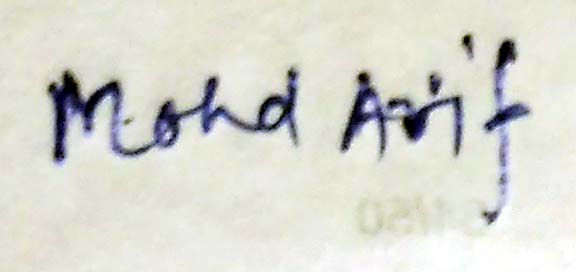 Mohd Arif